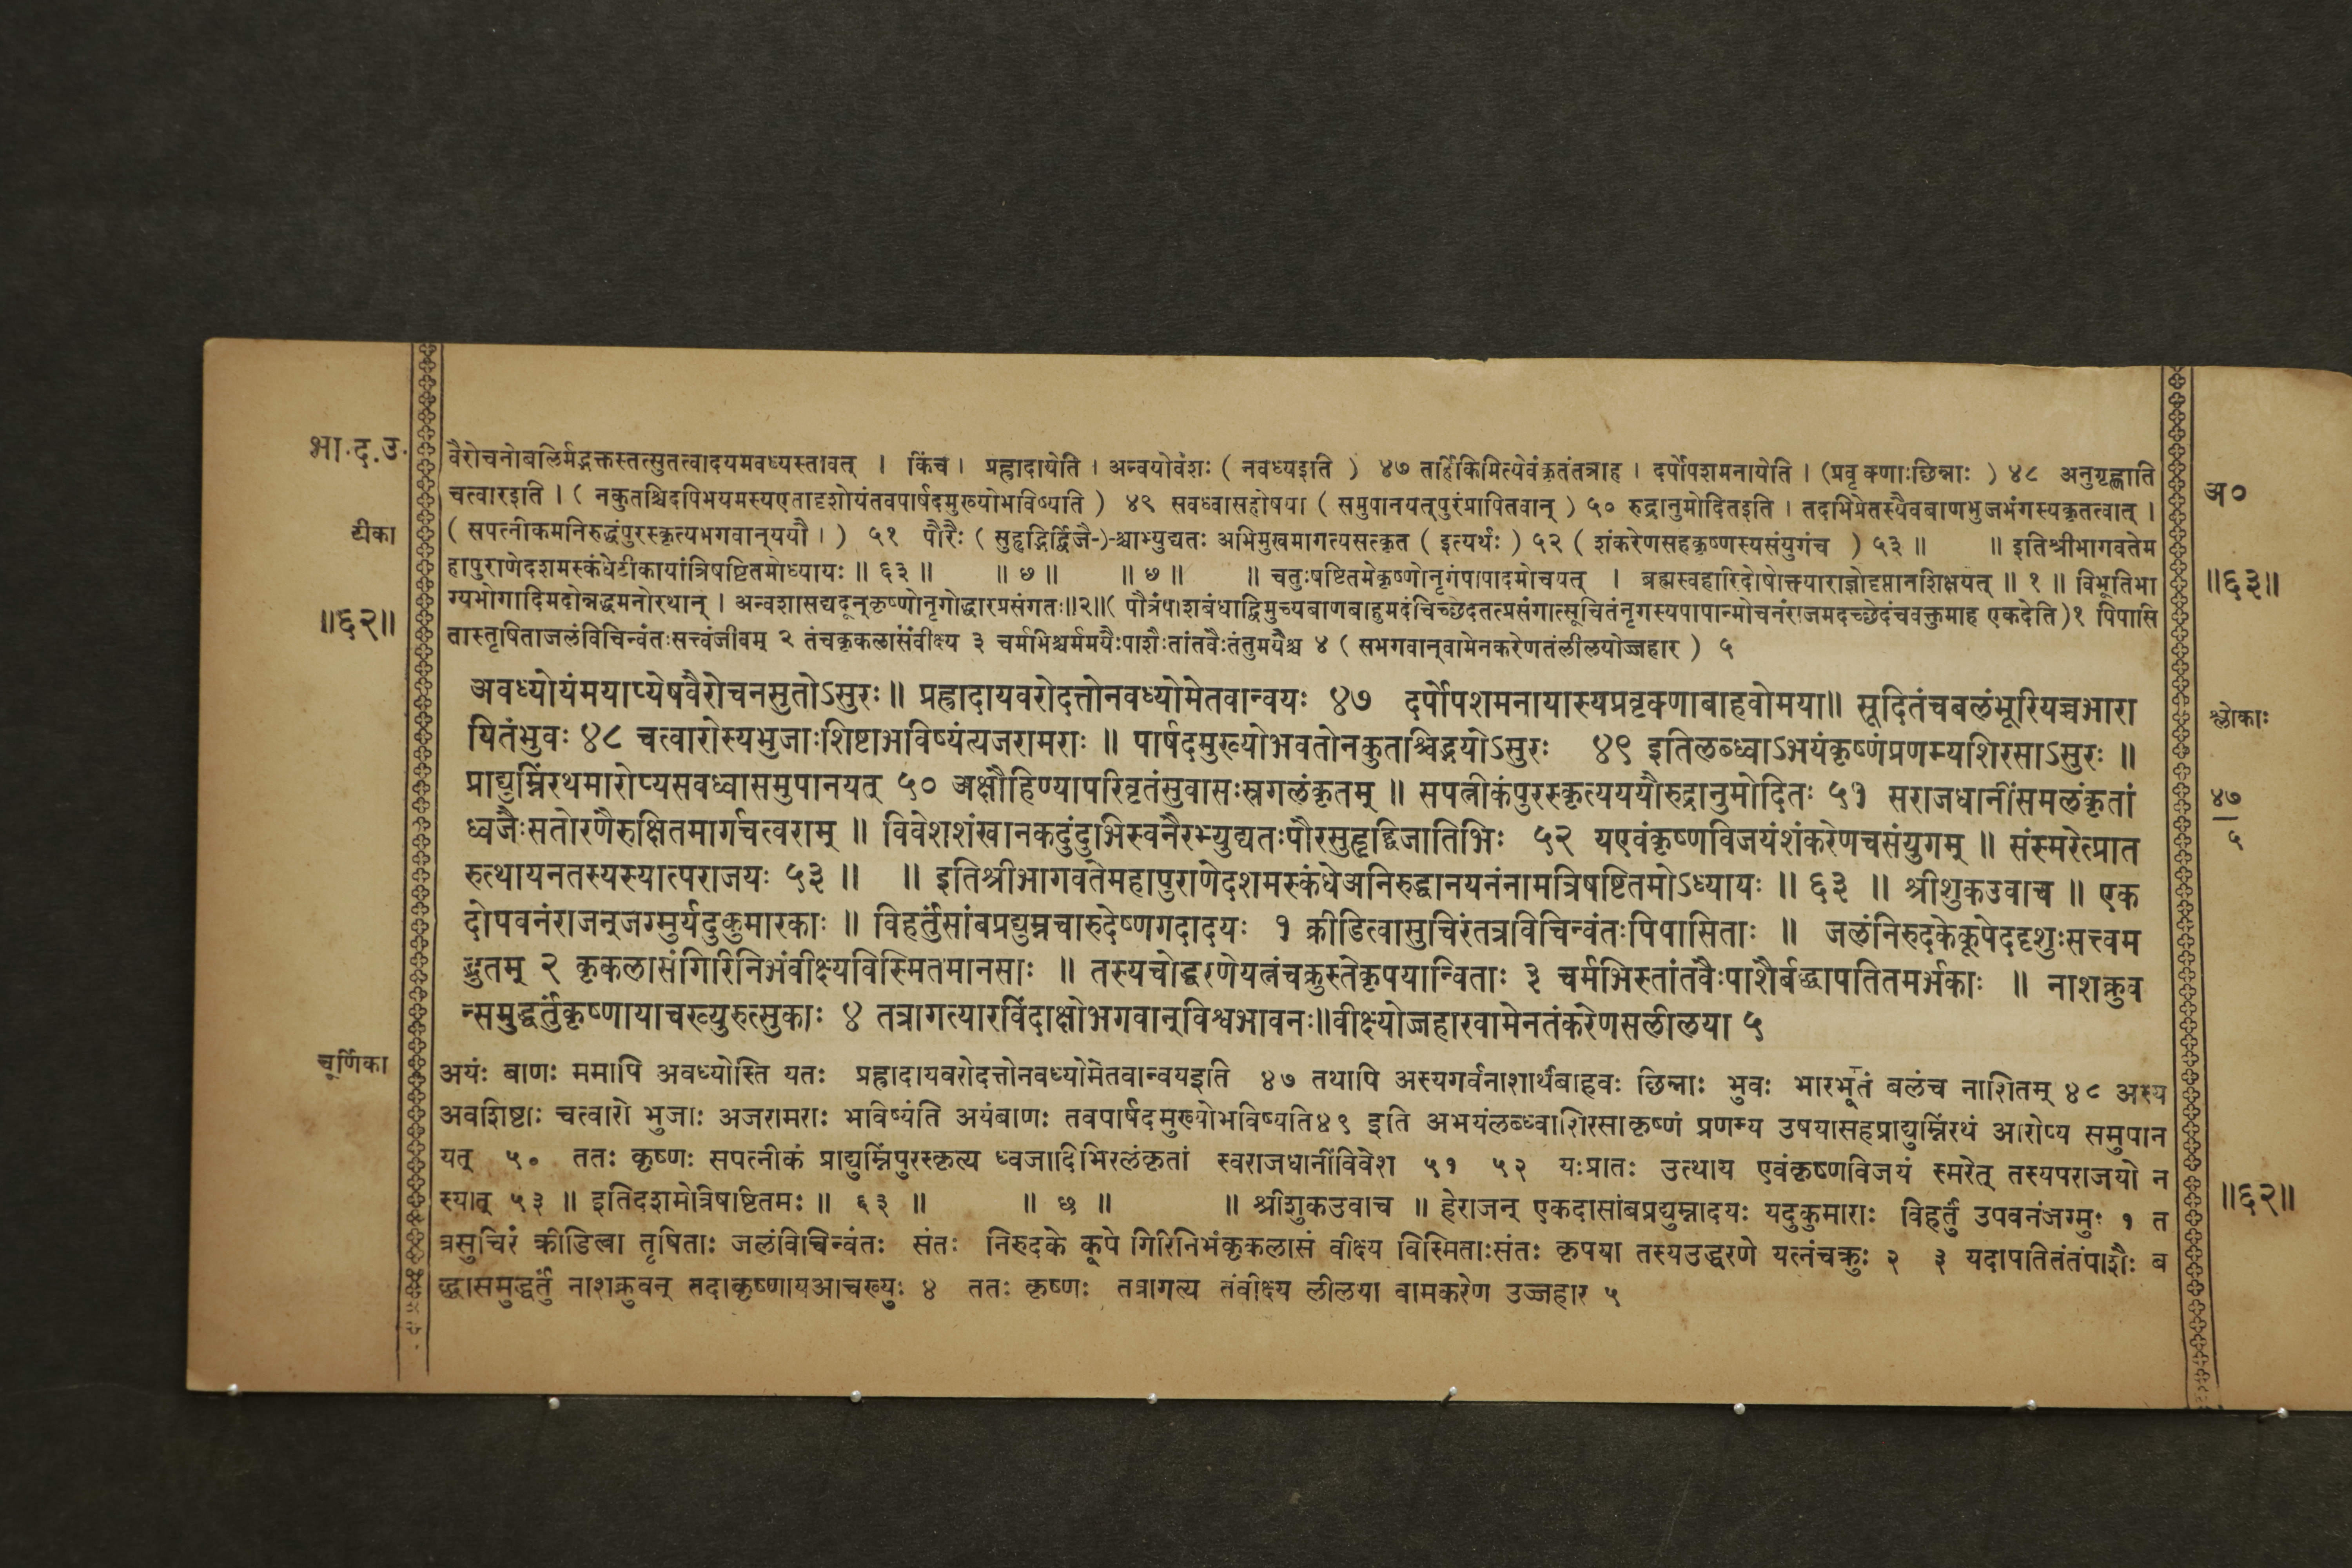 भा.द.उ.
टीका
॥६२॥
वैरोचनोबलिर्मद्भक्तस्तत्सुतत्वादयमवध्यस्तावत् । किंच । प्रह्लादायेति । अन्वयोवंशः ( नवध्यइति ) ४७ तर्हिकिमित्येवंकृतंतत्राह । दर्पोपशमनायेति । (प्रवृक्णाःछिन्नाः ) ४८ अनुगृह्णाति
चत्वारइति । ( नकुतश्चिदपिभयमस्यएतादृशोयंतवपार्षदमुख्योभविष्यति ) ४९ सवध्वासहोषया ( समुपानयत्पुरंप्रापितवान् ) ५० रुद्रानुमोदितइति । तदभिप्रेतस्यैवबाणभुजभंगस्यकृतत्वात् ।
( सपत्नीकमनिरुद्धंपुरस्कृत्यभगवान्ययौ । ) ५१ पौरैः ( सुहृद्भिर्द्विजै-)-श्चाभ्युद्यतः अभिमुखमागत्यसत्कृत ( इत्यर्थः ) ५२ ( शंकरेणसहकृष्णस्यसंयुगंच ) ५३ ॥ ॥ इतिश्रीभागवतेम
हापुराणेदशमस्कंधेटीकायांत्रिषष्टितमोध्यायः ॥ ६३ ॥ ॥ ७ ॥ ॥ ७ ॥ ॥ चतुःषष्टितमेकृष्णोनृगंपापादमोचयत् । ब्रह्मस्वहारिदोषोक्तयाराज्ञोदृप्तानशिक्षयत् ॥ १ ॥ विभूतिभा
ग्यभोगादिमदोन्नद्धमनोरथान् । अन्वशासद्यदून्कृष्णोनृगोद्धारप्रसंगतः॥२॥( पौत्रंपाशबंधाद्विमुच्यबाणबाहुमदंचिच्छेदतत्प्रसंगात्सूचितंनृगस्यपापान्मोचनंराजमदच्छेदंचवक्तुमाह एकदेति)१ पिपासि
तास्तृषिताजलंविचिन्वंतःसत्त्वंजीवम् २ तंचकृकलासंवीक्ष्य ३ चर्मभिश्चर्ममयैःपाशैःतांतवैःतंतुमयैश्च ४ ( सभगवान्वामेनकरेणतंलीलयोज्जहार ) ५
अवध्योयंममाप्येषवैरोचनसुतोऽसुरः॥ प्रह्लादायवरोदत्तोनवध्योमेतवान्वयः ४७ दर्पोपशमनायास्यप्रवृक्णाबाहवोमया॥ सूदितंचबलंभूरियच्चभारा
यितंभुवः ४८ चत्वारोस्यभुजाःशिष्टाभविष्यंत्यजरामराः ॥ पार्षदमुख्योभवतोनकुतश्चिद्भयोऽसुरः ४९ इतिलब्ध्वाऽभयंकृष्णंप्रणम्यशिरसाऽसुरः ॥
प्राद्युम्निंरथमारोप्यसवध्वासमुपानयत् ५० अक्षौहिण्यापरिवृतंसुवासःस्रगलंकृतम् ॥ सपत्नीकंपुरस्कृत्यययौरुद्रानुमोदितः ५१ सराजधानींसमलंकृतां
ध्वजैःसतोरणैरुक्षितमार्गचत्वराम् ॥ विवेशशंखानकदुंदुभिस्वनैरभ्युद्यतःपौरसुहृद्द्विजातिभिः ५२ यएवंकृष्णविजयंशंकरेणचसंयुगम् ॥ संस्मरेत्प्रात
रुत्थायनतस्यस्यात्पराजयः ५३ ॥ ॥ इतिश्रीभागवतेमहापुराणेदशमस्कंधेअनिरुद्धानयनंनामत्रिषष्टितमोऽध्यायः ॥ ६३ ॥ श्रीशुकउवाच ॥ एक
दोपवनंराजन्जग्मुर्यदुकुमारकाः ॥ विहर्तुंसांबप्रद्युम्नचारुदेष्णगदादयः १ क्रीडित्वासुचिरंतत्रविचिन्वंतःपिपासिताः ॥ जलंनिरुदकेकूपेददृशुःसत्त्वम
द्भुतम् २ कृकलासंगिरिनिभंवीक्ष्यविस्मितमानसाः ॥ तस्यचोद्धरणेयत्नंचक्रुस्तेकृपयान्विताः ३ चर्मभिस्तांतवैःपाशैर्बद्ध्वापतितमर्भकाः ॥ नाशक्नुव
न्समुद्धर्तुंकृष्णायाचख्युरुत्सुकाः ४ तत्रागत्यारविंदाक्षोभगवान्विश्वभावनः॥वीक्ष्योज्जहारवामेनतंकरेणसलीलया ५
चूर्णिका
अयंः बाणः ममापि अवध्योस्ति यतः प्रह्लादायवरोदत्तोनवध्योमेतवान्वयइति ४७ तथापि अस्यगर्वनाशार्थंबाहवः छिन्नाः भुवः भारभूतं बलंच नाशितम् ४८ अस्य
अवशिष्टाः चत्वारो भुजाः अजरामराः भविष्यंति अयंबाणः तवपार्षदमुख्योभविष्यति४९ इति अभयंलब्ध्वाशिरसाकृष्णं प्रणम्य उषयासहप्राद्युम्निंरथं आरोप्य समुपान
यत् ५० ततः कृष्णः सपत्नीकं प्राद्युम्निंपुरस्कृत्य ध्वजादिभिरलंकृतां स्वराजधानींविवेश ५१ ५२ यःप्रातः उत्थाय एवंकृष्णविजयं स्मरेत् तस्यपराजयो न
स्यात् ५३ ॥ इतिदशमोत्रिषष्टितमः ॥ ६३ ॥ ॥ छ ॥ ॥ श्रीशुकउवाच ॥ हेराजन् एकदासांबप्रद्युम्नादयः यदुकुमाराः विहर्तुं उपवनंजग्मुः १ त
त्रसुचिरं क्रीडित्वा तृषिताः जलंविचिन्वंतः संतः निरुदके कूपे गिरिनिभंकृकलासं वीक्ष्य विस्मिताःसंतः कृपया तस्यउद्धरणे यत्नंचक्रुः २ ३ यदापतितंतंपाशैः ब
द्ध्वासमुद्धर्तुं नाशक्नुवन् तदाकृष्णायआचख्युः ४ ततः कृष्णः तत्रागत्य तंवीक्ष्य लीलया वामकरेण उज्जहार ५
अ०
॥६३॥
श्लोकाः
४७
५
॥६२॥